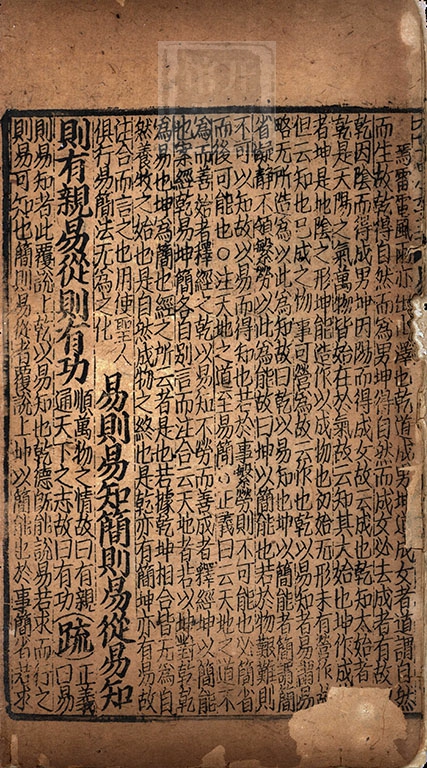 焉雷電風雨亦出山澤也乾道成男坤道成女者道謂自然
而生故乾得自然而為男坤得自然而成女必云成者有故以
乾因陰而得成男坤因陽而得成女故云成也乾知太始者以
乾是天陽之氣萬物皆始在於氣故云知其大始也坤作成物
者坤是地陰之形坤能造作以成物也初始无形未有營作故
但云知也已成之物事可營為故云作也乾以易知者易謂易
略无所造為以此為知故曰乾以易知也坤以簡能者簡謂簡
省凝靜不須繁勞以此為能故曰坤以簡能也若於物艱難則
不可以知故以易而得知也若於事繁勞則不可能也必簡省
而後可能也○注天地之道至易簡○正義曰云天地之道不
為而善始者釋經之乾以易知不勞而善成者釋經坤以簡能
也案經乾易坤簡各自別言而注合云天地者若以坤對乾乾
為易也坤為簡也經之所云者是也若據乾坤相合皆无為自
然養物之始也是自然成物之終也是乾亦有簡坤亦有易故
注合而言之也用使聖人
俱行易簡法无為之化
易則易知簡則易從易知
則有親易從則有功
順萬物之情故曰有親
通天下之志故曰有功
疏
正義
曰易
則易知者此覆說上乾以易知也乾德既能說易若求而行之
則易可知也簡則易從者覆說上坤以簡能也於事簡省若求